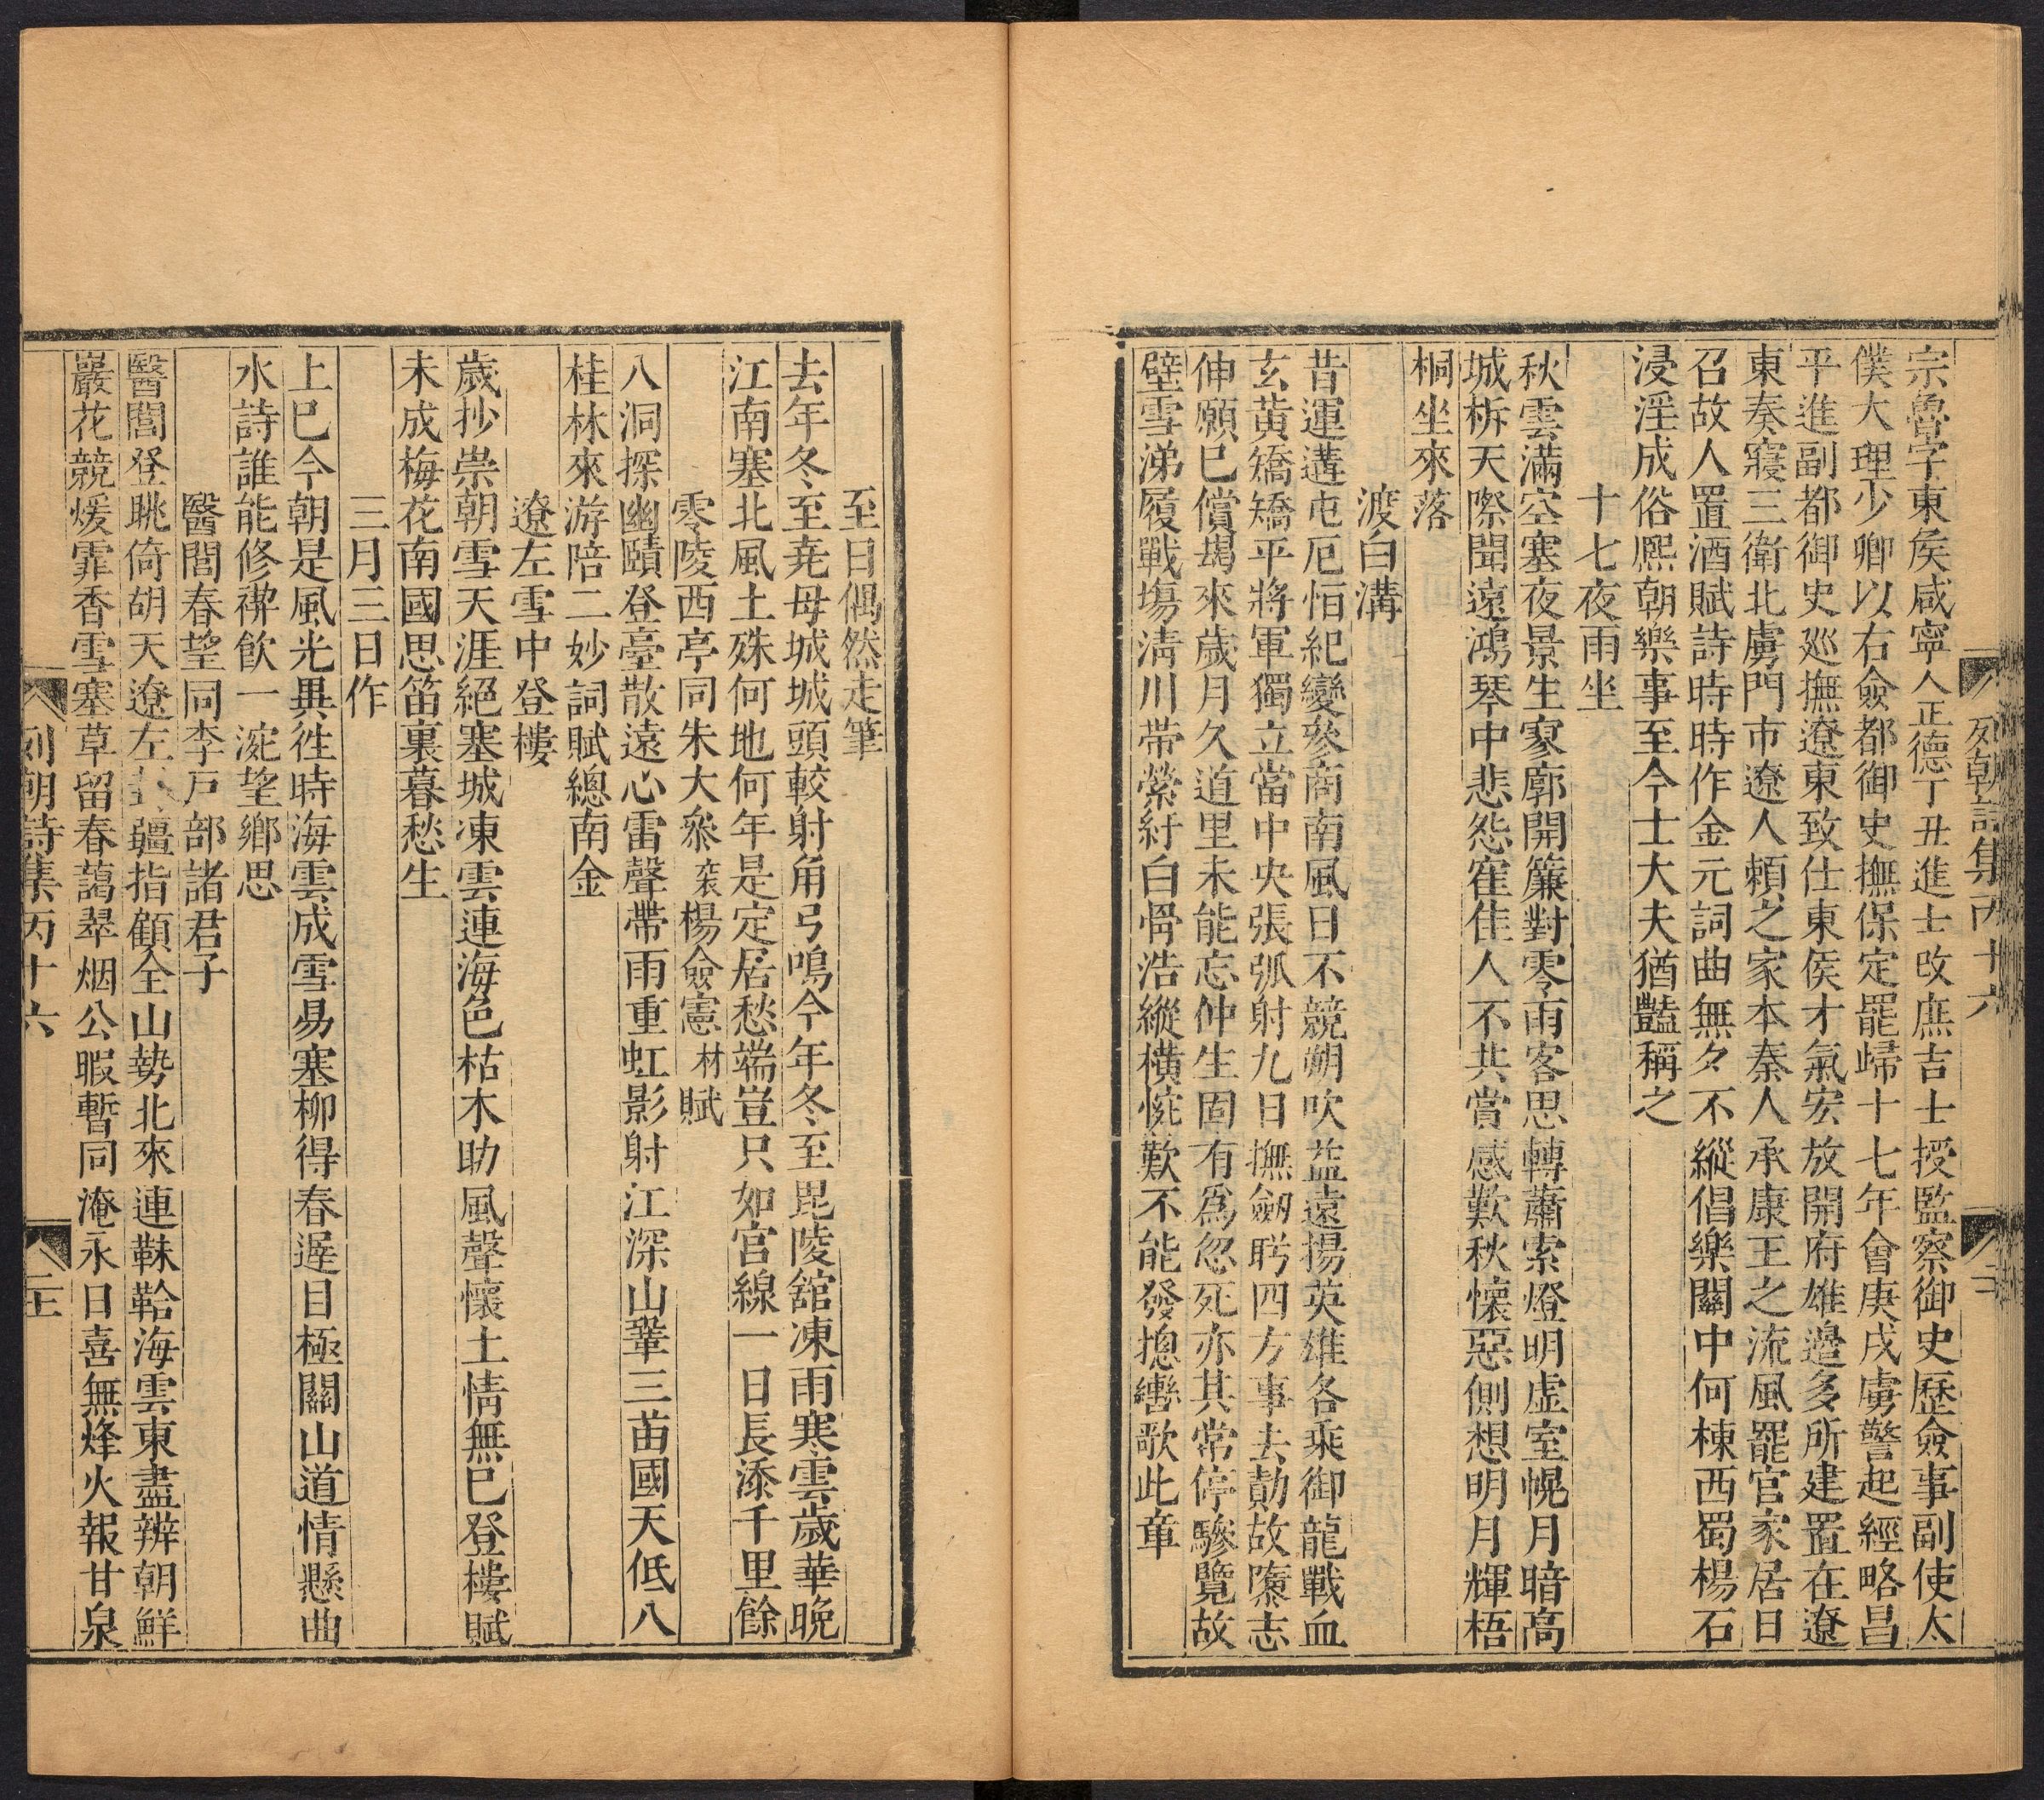 列朝詩集丙十六
宗魯字東矦咸寧人正德丁丑進士改庶吉士授監察御史歷僉事副使太
僕大理少卿以右僉都御史撫保定罷歸十七年會庚戌虜警起經略昌
平進副都御史廵撫遼東致仕東侯才氣宏放開府雄邊多所建置在遼
東奏寢三衛北虜門市遼人賴之家本秦人承康王之流風罷官家居日
召故人置酒賦詩時時作金元詞曲無夕不縱倡樂關中何棟西蜀楊石
浸淫成俗熈朝樂事至今士大夫猶豔稱之
十七夜雨坐
秋雲滿空塞夜景生寥廓開簾對零雨客思轉蕭索燈明虛室幌月暗高
城柝天際聞遠鴻琴中悲怨寉佳人不共嘗感歎秋懷惡側想明月輝梧
桐坐來落
渡白溝
昔運遘屯厄怕紀變叅商南風日不競朔吹益遠揚英雄各乘御龍戰血
玄黃矯矯平將軍獨立當中央張弧射九日撫劒眄四方事去勣故隳志
伸願已償朅來歲月久道里未能忘仲生固有爲忽死亦其常停驂覽故
壁雪涕履戰塲淸川帶縈紆白骨浩縱橫惋歎不能發摠轡歌此章
至日偶然走筆
去年冬至堯母城城頭較射角弓鳴今年冬至毘陵舘凍雨寒雲歲華晚
江南塞北風土殊何地何年是定居愁端豈只如宮線一日長添千里餘
零陵西亭同朱大叅衮楊僉憲材賦
八洞探幽蹟登臺散遠心雷聲帶雨重虹影射江深山鞏三苗國天低八
桂林來游陪二妙詞賦總南金
遼左雪中登樓
歲抄崇朝雪天涯絕塞城凍雲連海色枯木助風聲懷土情無已登樓賦
未成梅花南國思笛裏暮愁生
三月三日作
上巳今朝是風光異徃時海雲成雪易塞柳得春遲目極關山道情懸曲
水詩誰能修禊飮一㴜望鄉思
醫閭春望同李戸部諸君子
醫閭登眺倚胡天遼左疆指顧全山勢北來連靺鞈海雲東盡辨朝鮮
巖花競煖霏香雪塞草留春藹翠烟公暇暫同淹永日喜無烽火報甘泉
列朝詩集丙十六